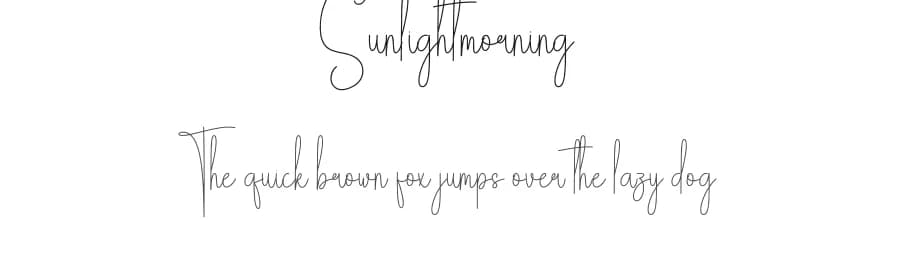 Sunlightmorning
The quick brown fox jumps over the lazy dog